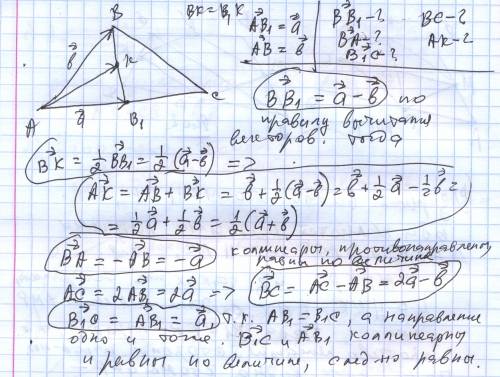 BK = B₁K
AB₁ = a⃗
AB = b⃗
BB₁ - ?
BA - ?
B₁C ?
BC - ?
AK - ?
B
b⃗
K
A
a⃗
B₁
C
BB₁ = a⃗ - b⃗ по
правилу вычитания
векторов. тогда
BK = 1/2 BB₁ = 1/2 (a⃗ - b⃗) =>
AK = AB + BK = b⃗ + 1/2 (a⃗ - b⃗) = b⃗ + 1/2 a⃗ - 1/2 b⃗ =
= 1/2 a⃗ + 1/2 b⃗ = 1/2 (a⃗ + b⃗)
BA = - AB = - a⃗ коллинеары, противонаправлены
равны по величине
AC = 2AB₁ = 2a⃗ => BC = AC - AB = 2a⃗ - b⃗
B₁C = AB₁ = a⃗, т.к. AB₁ = B₁C, а направление
одно и тоже. B₁C и AB₁ коллинеарны
и равны по величине, след-но равны.